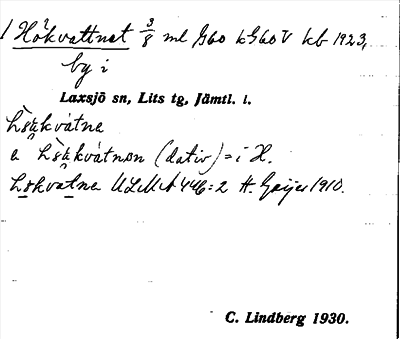 1 Hökvattnet 3/8 ml G60 kG60V kb 1923,
by i
Laxsjö sn, Lits tg, Jämtl. l.
hsäkvátne
a hsäkvátnen (dativ) = i H.
hskvatne ULMA 446:2 H. Geijer 1910.
C. Lindberg 1930.